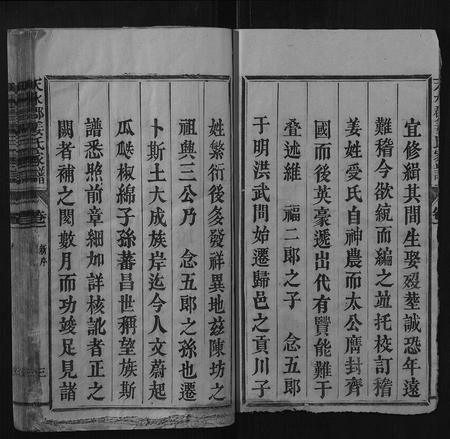 宜修緝其間生娶殁塟誠恐年遠
難稽今欲統而編之竝托校訂稽
姜姓受氏自神農而太公膺封齊
國而後英豪遞出代有賢能難于
叠述維　福二郎之子　念五郎
于明洪武間始遷歸邑之貢川子
姓繁衍後多發祥異地兹陳坊之
祖興三公乃　念五郎之孫也遷
卜斯土大成族岸迄今人文蔚起
瓜瓞椒綿子孫蕃昌世稱望族斯
譜悉照前章細加詳核訛者正之
闕者補之閱數月而功竣足見諸
天水郡姜氏家譜
卷
新序
三